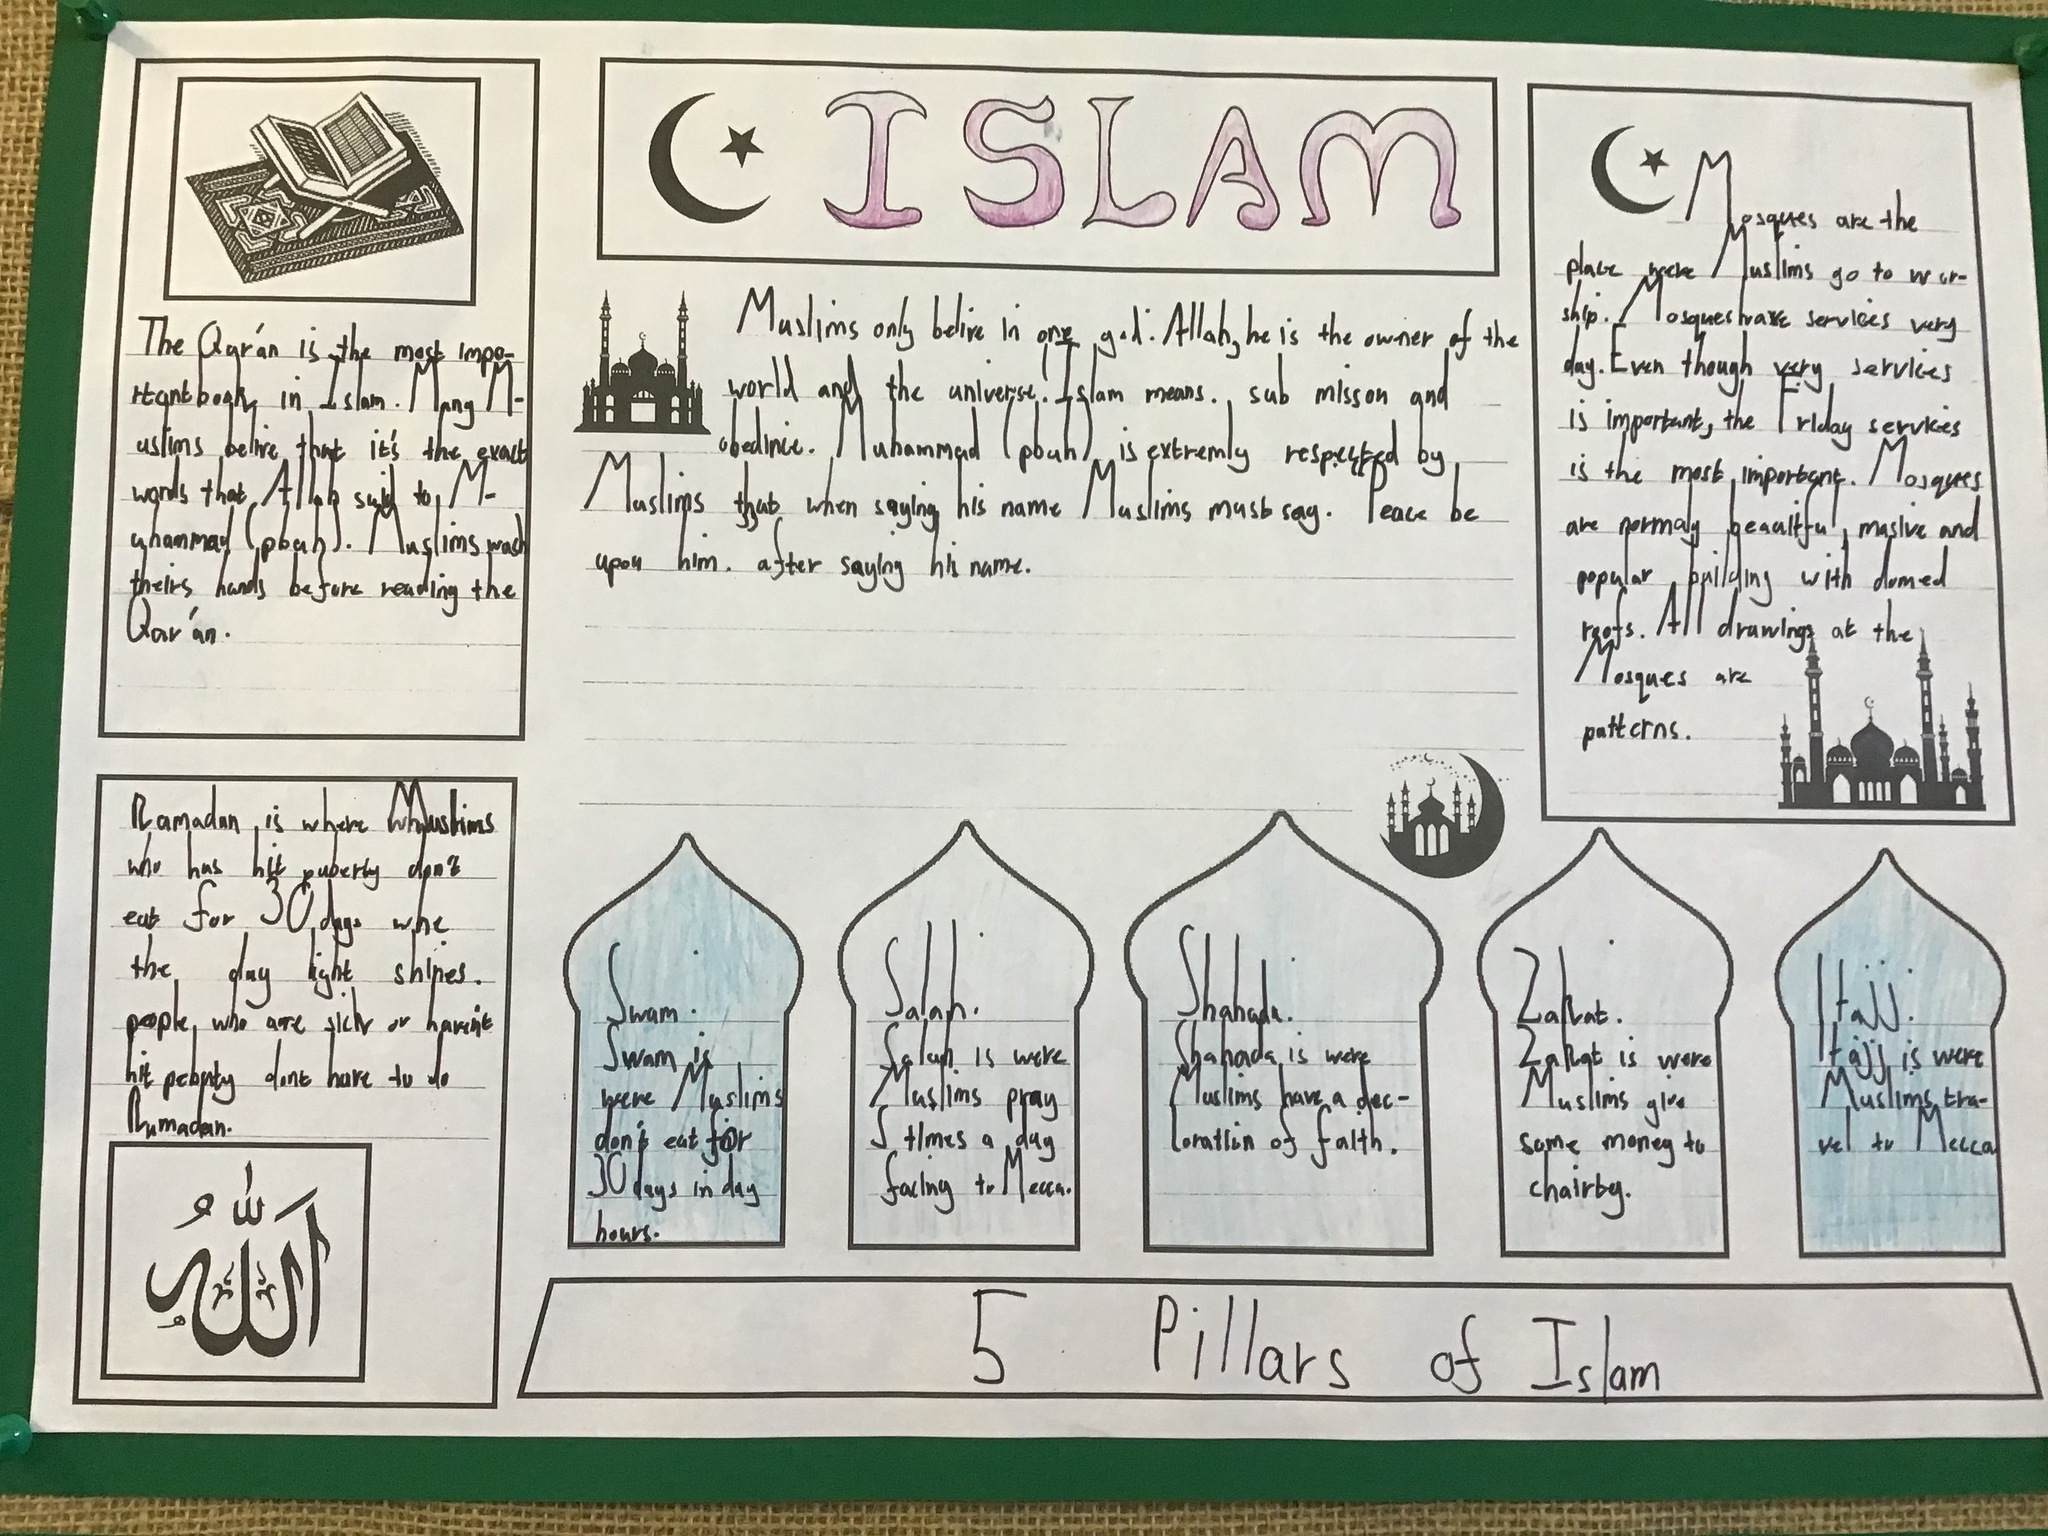 ISLAM
The Qur'an is the most impo-
rtant book in Islam. Many M-
uslims belive that it's the exact
words that Allah said to M-
uhammad (pbuh). Muslims wash
theirs hands before reading the
Qur'an.
Ramadan is where Muslims
who has hit puberty don't
eat for 30 days whe
the day light shines.
people who are sick or havent
hit peberty dont have to do
Ramadan.
الله
Muslims only belive in one god. Allah, he is the owner of the
world and the universe. Islam means. sub misson and
obedince. Muhammad (pbuh) is extremly respected by
Muslims that when saying his name Muslims must say. Peace be
upon him. after saying his name.
Mosques are the
place were Muslims go to wor-
ship. Mosques have services very
day. Even though very services
is important, the Friday services
is the most important. Mosques
are normaly beautiful, masive and
popular building with domed
roofs. All drawings at the
Mosques are
patterns.
Swam.
Swam is
were Muslims
don't eat for
30 days in day
hours.
Salah.
Salah is were
Muslims pray
5 times a day
facing to Mecca.
Shahada.
Shahada is were
Muslims have a dec-
loration of faith.
Zakat.
Zakat is were
Muslims give
some money to
chairty.
Hajj.
Hajj is were
Muslims tra-
vel to Mecca
5 Pillars of Islam